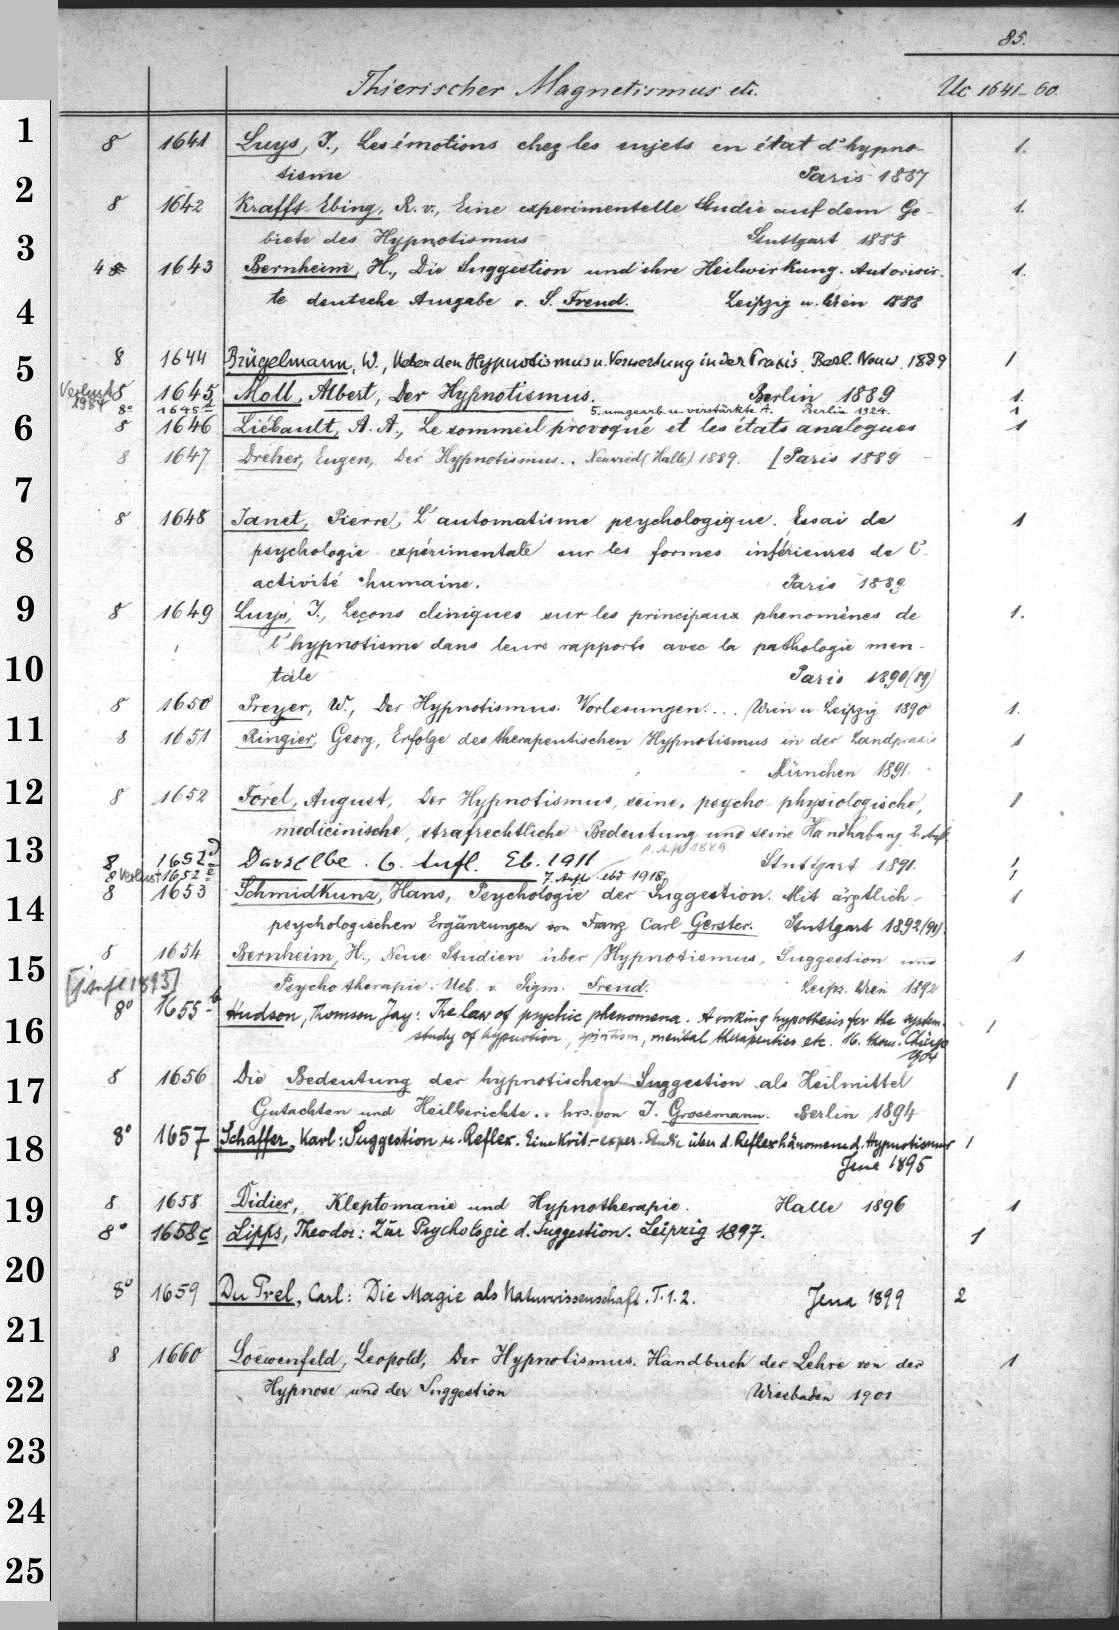 85.
Thierischer Magnetismus etc. Uc 1641-60.
1
8 1641 Luys, J., Les émotions chez les sujets en état d'hypno- 1.
tisme Paris 1887
2
8 1642 Krafft-Ebing, R. v., Eine experimentelle Studie auf dem Ge- 1.
3
biete des Hypnotismus Stuttgart 1888
4 1643 Bernheim, H., Die Suggestion und ihre Heilwirkung. Autorisir- 1.
4
te deutsche Ausgabe v. S. Freud. Leipzig u. Wien 1888
5
8 1644 Brügelmann, W., Ueber den Hypnotismus u. Verwertung in der Praxis. Berl. Neuw. 1889 1
Verlust 8 1645 Moll, Albert, Der Hypnotismus. Berlin 1889 1.
1984
8° 1645 d 5. umgearb. u. verstärkte A. Berlin 1924. 1
6
8 1646 Liébault, A. A., Le sommeil provoqué et les états analogues 1
8 1647 Dreher, Eugen, Der Hypnotismus.. Neuwied (Halle) 1889. [Paris 1889
7
8 1648 Janet, Pierre, L'automatisme psychologique. Essai de 1
8
psychologie expérimentale sur les formes inférieures de l'
activité humaine. Paris 1889
9
8 1649 Luys, J., Leçons cliniques sur les principaux phenomènes de 1.
l'hypnotisme dans leurs rapports avec la pathologie men-
10
tale Paris 1890(89)
8 1650 Preyer, W., Der Hypnotismus. Vorlesungen.... Wien u. Leipzig 1890 1.
11
8 1651 Ringier, Georg, Erfolge des therapeutischen Hypnotismus in der Landpraxis 1
München 1891.
12
8 1652 Forel, August, Der Hypnotismus, seine psycho-physiologische, 1
medicinische, strafrechtliche Bedeutung und seine Handhabung 2. Aufl.
1. Aufl. 1889.
13
8 1652 d Dasselbe. 6. Aufl. Eb. 1911 Stuttgart 1891. 1
8 Verlust 1652 e 7. Aufl. ebd 1918. 1
8 1653 Schmidkunz, Hans, Psychologie der Suggestion. Mit ärztlich- 1
14
psychologischen Ergänzungen von Franz Carl Gerster. Stuttgart 1892(91).
8 1654 Bernheim, H., Neue Studien über Hypnotismus, Suggestion und 1
15
[1. Aufl 1893] Psychotherapie. Ueb. v. Sigm. Freud. Leipz. Wien 1892
8° 1655 b Hudson, Thomson Jay: The law of psychic phenomena. A working hypothesis for the system. 1
16
study of hypnotism, spiritism, mental therapeutics etc. 16. thous. Chicago
1904
17
8 1656 Die Bedeutung der hypnotischen Suggestion als Heilmittel 1
Gutachten und Heilberichte.. hrs. von J. Grossmann. Berlin 1894
18
8° 1657 Schaffer, Karl: Suggestion u. Reflex. Eine krit.-exper. Studie über d. Reflexphänomene d. Hypnotismus 1
Jena 1895
19
8 1658 Didier, Kleptomanie und Hypnotherapie. Halle 1896 1
8° 1658c Lipps, Theodor: Zur Psychologie d. Suggestion. Leipzig 1897. 1
20
8° 1659 Du Prel, Carl: Die Magie als Naturwissenschaft. T. 1. 2. Jena 1899 2
21
8 1660 Loewenfeld, Leopold, Der Hypnotismus. Handbuch der Lehre von der 1
22
Hypnose und der Suggestion Wiesbaden 1901
23
24
25